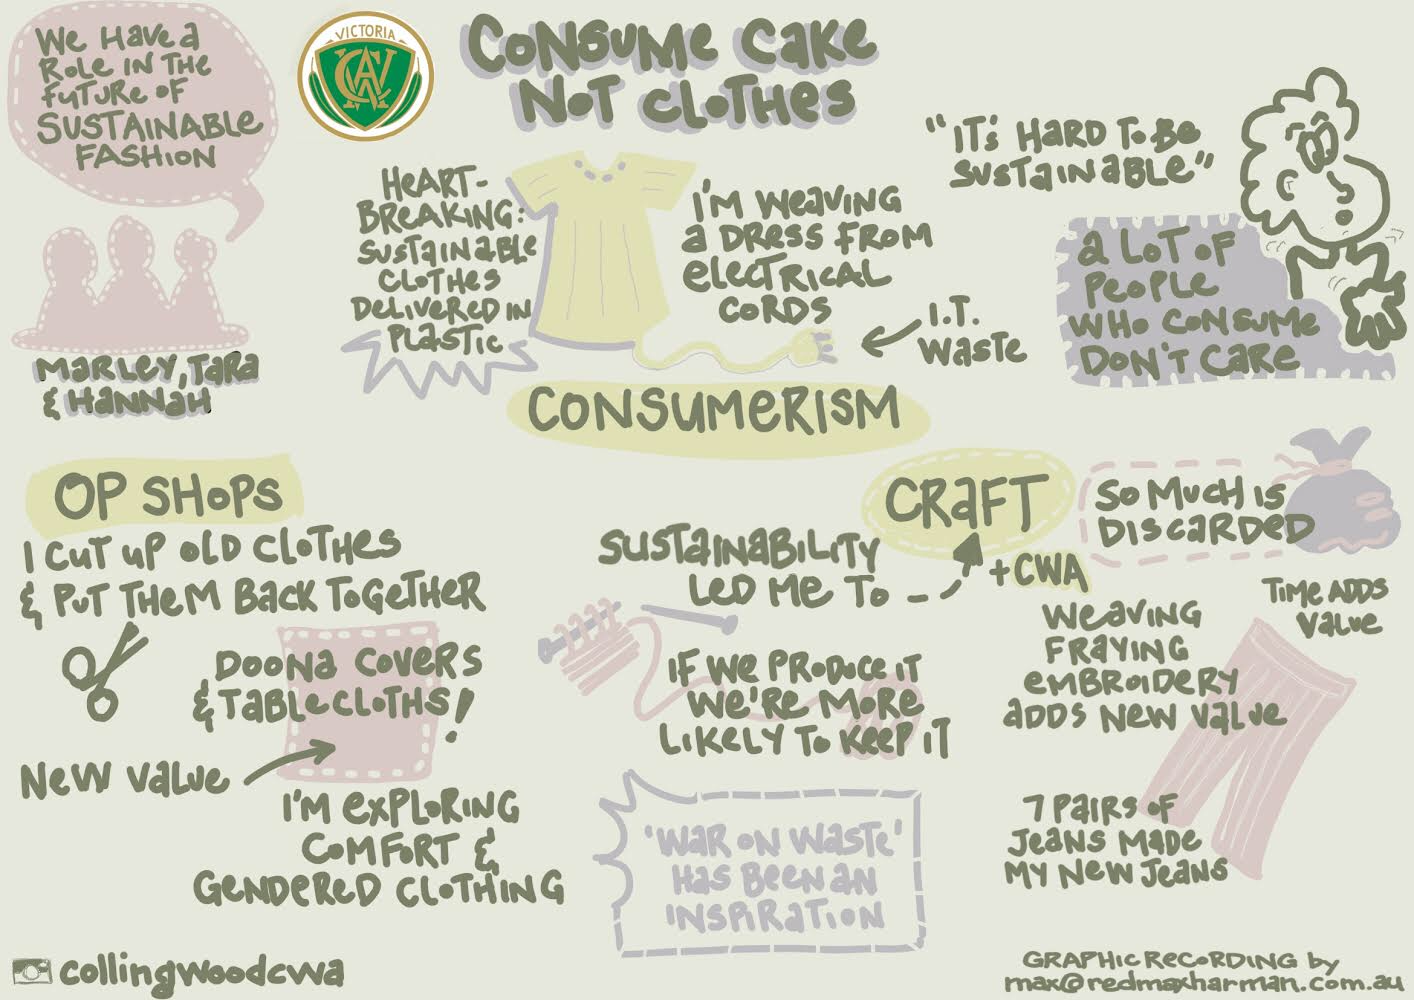 We Have a
Role in the
future of
Sustainable
Fashion
Marley, Tara
& Hannah
VICTORIA
CWA
Consume Cake
Not Clothes
Heart-
Breaking:
Sustainable
Clothes
Delivered in
Plastic
I'm weaving
a dress from
electrical
cords
I.T.
Waste
"It's hard to be
sustainable"
a lot of
people
who consume
don't care
Consumerism
Op Shops
I cut up old clothes
& put them back together
Doona covers
& tablecloths!
New value
I'm exploring
comfort &
gendered clothing
Sustainability
led me to
Craft
+CWA
If we produce it
we're more
likely to keep it
'War on Waste'
has been an
inspiration
So much is
discarded
Time adds
value
Weaving
Fraying
Embroidery
adds new value
7 pairs of
jeans made
my new jeans
collingwoodcwa
Graphic Recording by
max@redmaxharman.com.au